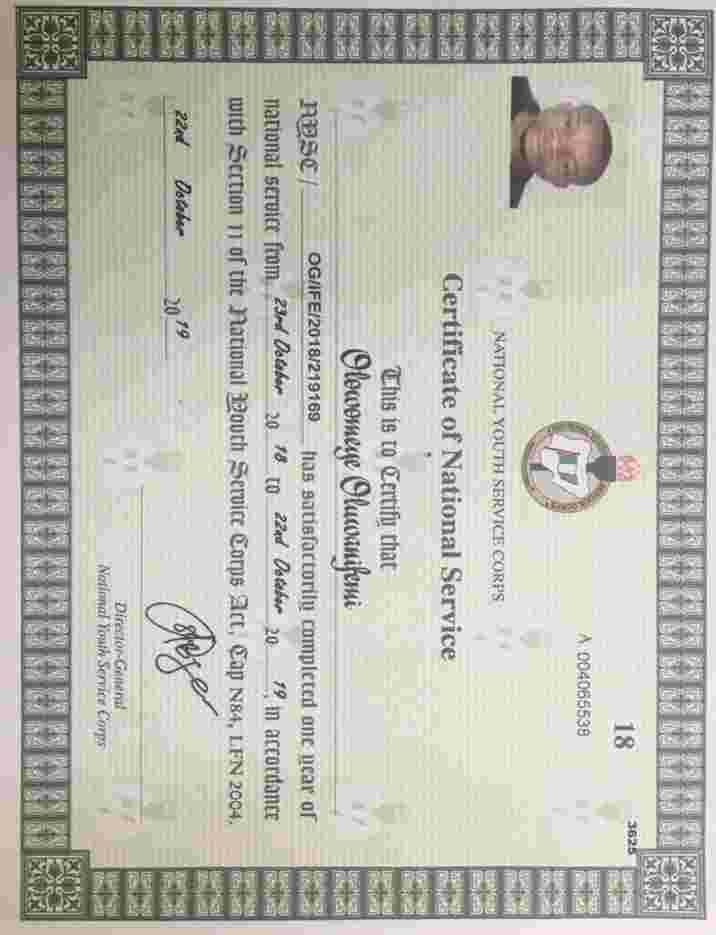 3625
18
A 004065538
NATIONAL YOUTH SERVICE CORPS
Certificate of National Service
This is to Certify that
Olowomeye Oluwanifemi
NYSC / OG/IFE/2018/219169 has satisfactorily completed one year of
national service from 23rd October 20 18 to 22nd October 20 19, in accordance
with Section 11 of the National Youth Service Corps Act, Cap N84, LFN 2004.
22nd October 20 19
Director-General
National Youth Service Corps